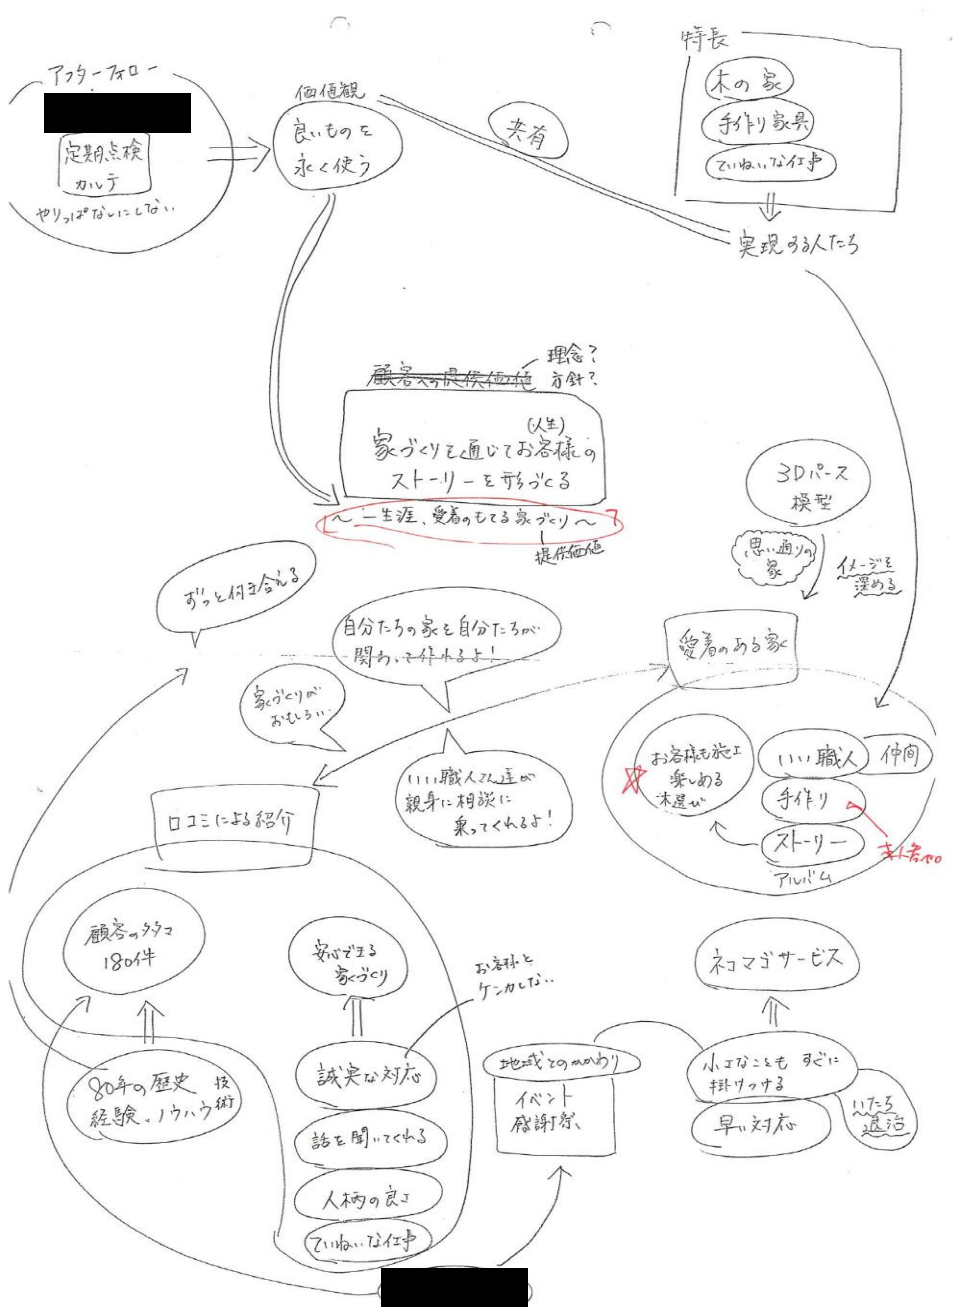 アフターフォロー
定期点検
カルテ
やりっぱなしにしない
価値観
良いものを
永く使う
共有
特長
木の家
手作り家具
ていねいな仕事
実現する人たち
顧客への提供価値
理念?
方針?
(人生)
家づくりを通じてお客様の
ストーリーを形づくる
〜一生涯、愛着のもてる家づくり〜?
提供価値
3Dパース
模型
思い通りの
家
イメージを
深める
ずっと付き合える
自分たちの家を自分たちが
関わって作れるよ!
家づくりが
おもしろい
いい職人さん達が
親身に相談に
乗ってくれるよ!
愛着のある家
お客様も施工
楽しめる
木選び
いい職人
仲間
手作り
ストーリー
アルバム
口コミによる紹介
顧客のタタマ
180件
安心できる
家づくり
お客様と
ケンカしない
80年の歴史
経験、ノウハウ
技術
誠実な対応
話を聞いてくれる
人柄の良さ
ていねいな仕事
地域とのかかわり
イベント
感謝祭、
ネコマゴサービス
小さなことも すぐに
掛けつける
早い対応
いたち
退治